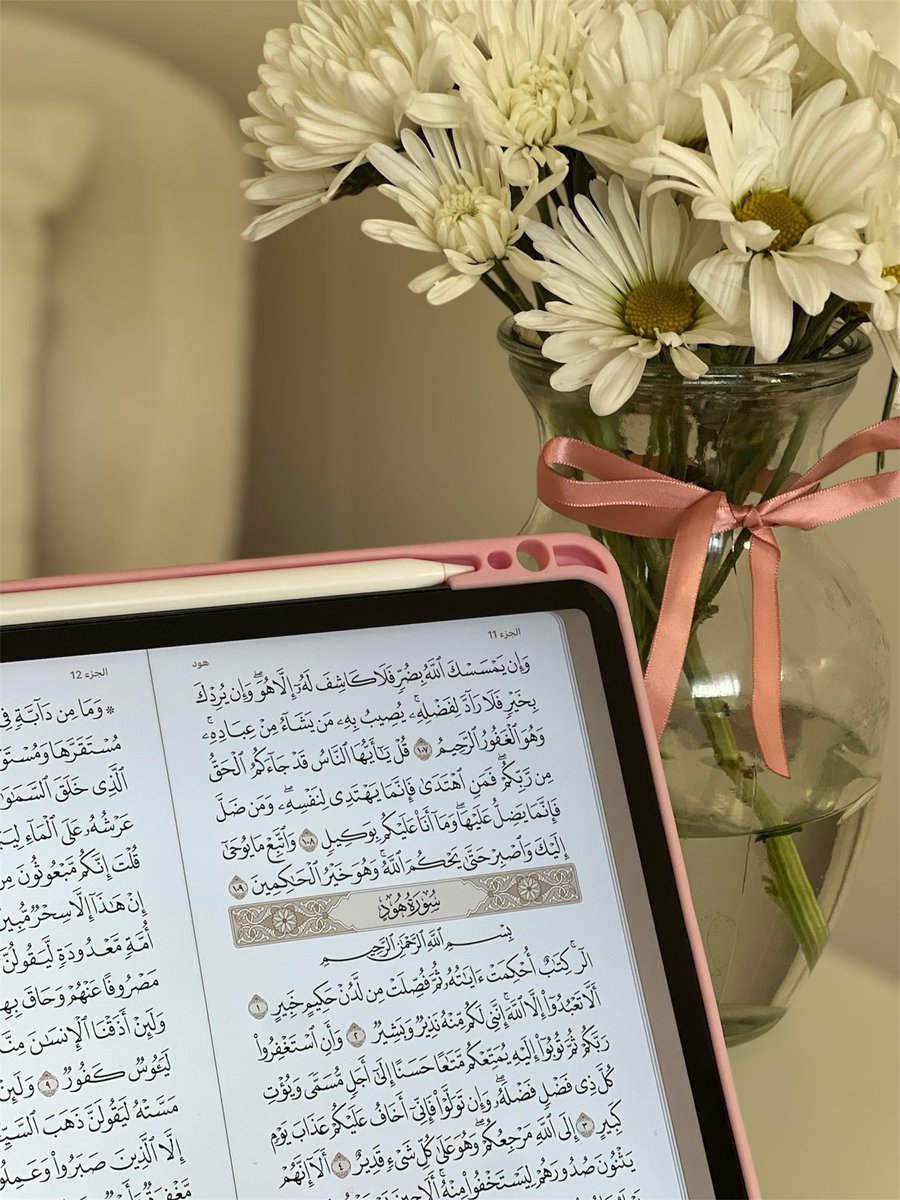 الجزء 11
هود
وَإِن يَمْسَسْكَ ٱللَّهُ بِضُرٍّ فَلَا كَاشِفَ لَهُۥٓ إِلَّا هُوَ ۖ وَإِن يُرِدْكَ
بِخَيْرٍ فَلَا رَآدَّ لِفَضْلِهِۦ ۚ يُصِيبُ بِهِۦ مَن يَشَآءُ مِنْ عِبَادِهِۦ ۚ
وَهُوَ ٱلْغَفُورُ ٱلرَّحِيمُ ١٠٧ قُلْ يَـٰٓأَيُّهَا ٱلنَّاسُ قَدْ جَآءَكُمُ ٱلْحَقُّ
مِن رَّبِّكُمْ ۖ فَمَنِ ٱهْتَدَىٰ فَإِنَّمَا يَهْتَدِى لِنَفْسِهِۦ ۖ وَمَن ضَلَّ
فَإِنَّمَا يَضِلُّ عَلَيْهَا ۖ وَمَآ أَنَا۠ عَلَيْكُم بِوَكِيلٍ ١٠٨ وَٱتَّبِعْ مَا يُوحَىٰٓ
إِلَيْكَ وَٱصْبِرْ حَتَّىٰ يَحْكُمَ ٱللَّهُ ۚ وَهُوَ خَيْرُ ٱلْحَـٰكِمِينَ ١٠٩
سُورَةُ هُودٍ
بِسْمِ ٱللَّهِ ٱلرَّحْمَـٰنِ ٱلرَّحِيمِ
الٓر ۚ كِتَـٰبٌ أُحْكِمَتْ ءَايَـٰتُهُۥ ثُمَّ فُصِّلَتْ مِن لَّدُنْ حَكِيمٍ خَبِيرٍ ١
أَلَّا تَعْبُدُوٓا۟ إِلَّا ٱللَّهَ ۚ إِنَّنِى لَكُم مِّنْهُ نَذِيرٌ وَبَشِيرٌ ٢ وَأَنِ ٱسْتَغْفِرُوا۟
رَبَّكُمْ ثُمَّ تُوبُوٓا۟ إِلَيْهِ يُمَتِّعْكُم مَّتَـٰعًا حَسَنًا إِلَىٰٓ أَجَلٍ مُّسَمًّى وَيُؤْتِ
كُلَّ ذِى فَضْلٍ فَضْلَهُۥ ۖ وَإِن تَوَلَّوْا۟ فَإِنِّىٓ أَخَافُ عَلَيْكُمْ عَذَابَ يَوْمٍ
كَبِيرٍ ٣ إِلَى ٱللَّهِ مَرْجِعُكُمْ ۖ وَهُوَ عَلَىٰ كُلِّ شَىْءٍ قَدِيرٌ ٤ أَلَآ إِنَّهُمْ
يَثْنُونَ صُدُورَهُمْ لِيَسْتَخْفُوا۟ مِنْهُ ۚ أَلَا حِينَ
الجزء 12
۞ وَمَا مِن دَآبَّةٍ فِى
مُسْتَقَرَّهَا وَمُسْتَوْ
ٱلَّذِى خَلَقَ ٱلسَّمَـٰوَ
عَرْشُهُۥ عَلَى ٱلْمَآءِ لِيَبْ
قُلْتَ إِنَّكُم مَّبْعُوثُونَ مِنۢ
إِنْ هَـٰذَآ إِلَّا سِحْرٌ مُّبِينٌ
أُمَّةٍ مَّعْدُودَةٍ لَّيَقُولُنَّ
مَصْرُوفًا عَنْهُمْ وَحَاقَ بِهِم
وَلَئِنْ أَذَقْنَا ٱلْإِنسَـٰنَ مِنَّا
لَيَـُٔوسٌ كَفُورٌ ٩ وَلَئِنْ
مَسَّتْهُ لَيَقُولَنَّ ذَهَبَ ٱلسَّيِّـَٔ
إِلَّا ٱلَّذِينَ صَبَرُوا۟ وَعَمِلُوا۟
مَّغْفِرَةٌ وَأَجْرٌ